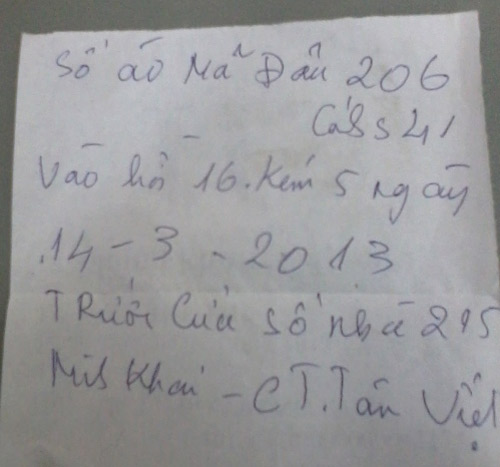 Số áo Mã Đầu 206
CảSs 41
Vào hồi 16. Kém 5 ngày
.14 - 3 - 2013
Trước Cửa số nhà 295
Khai - CT. Tân Việt